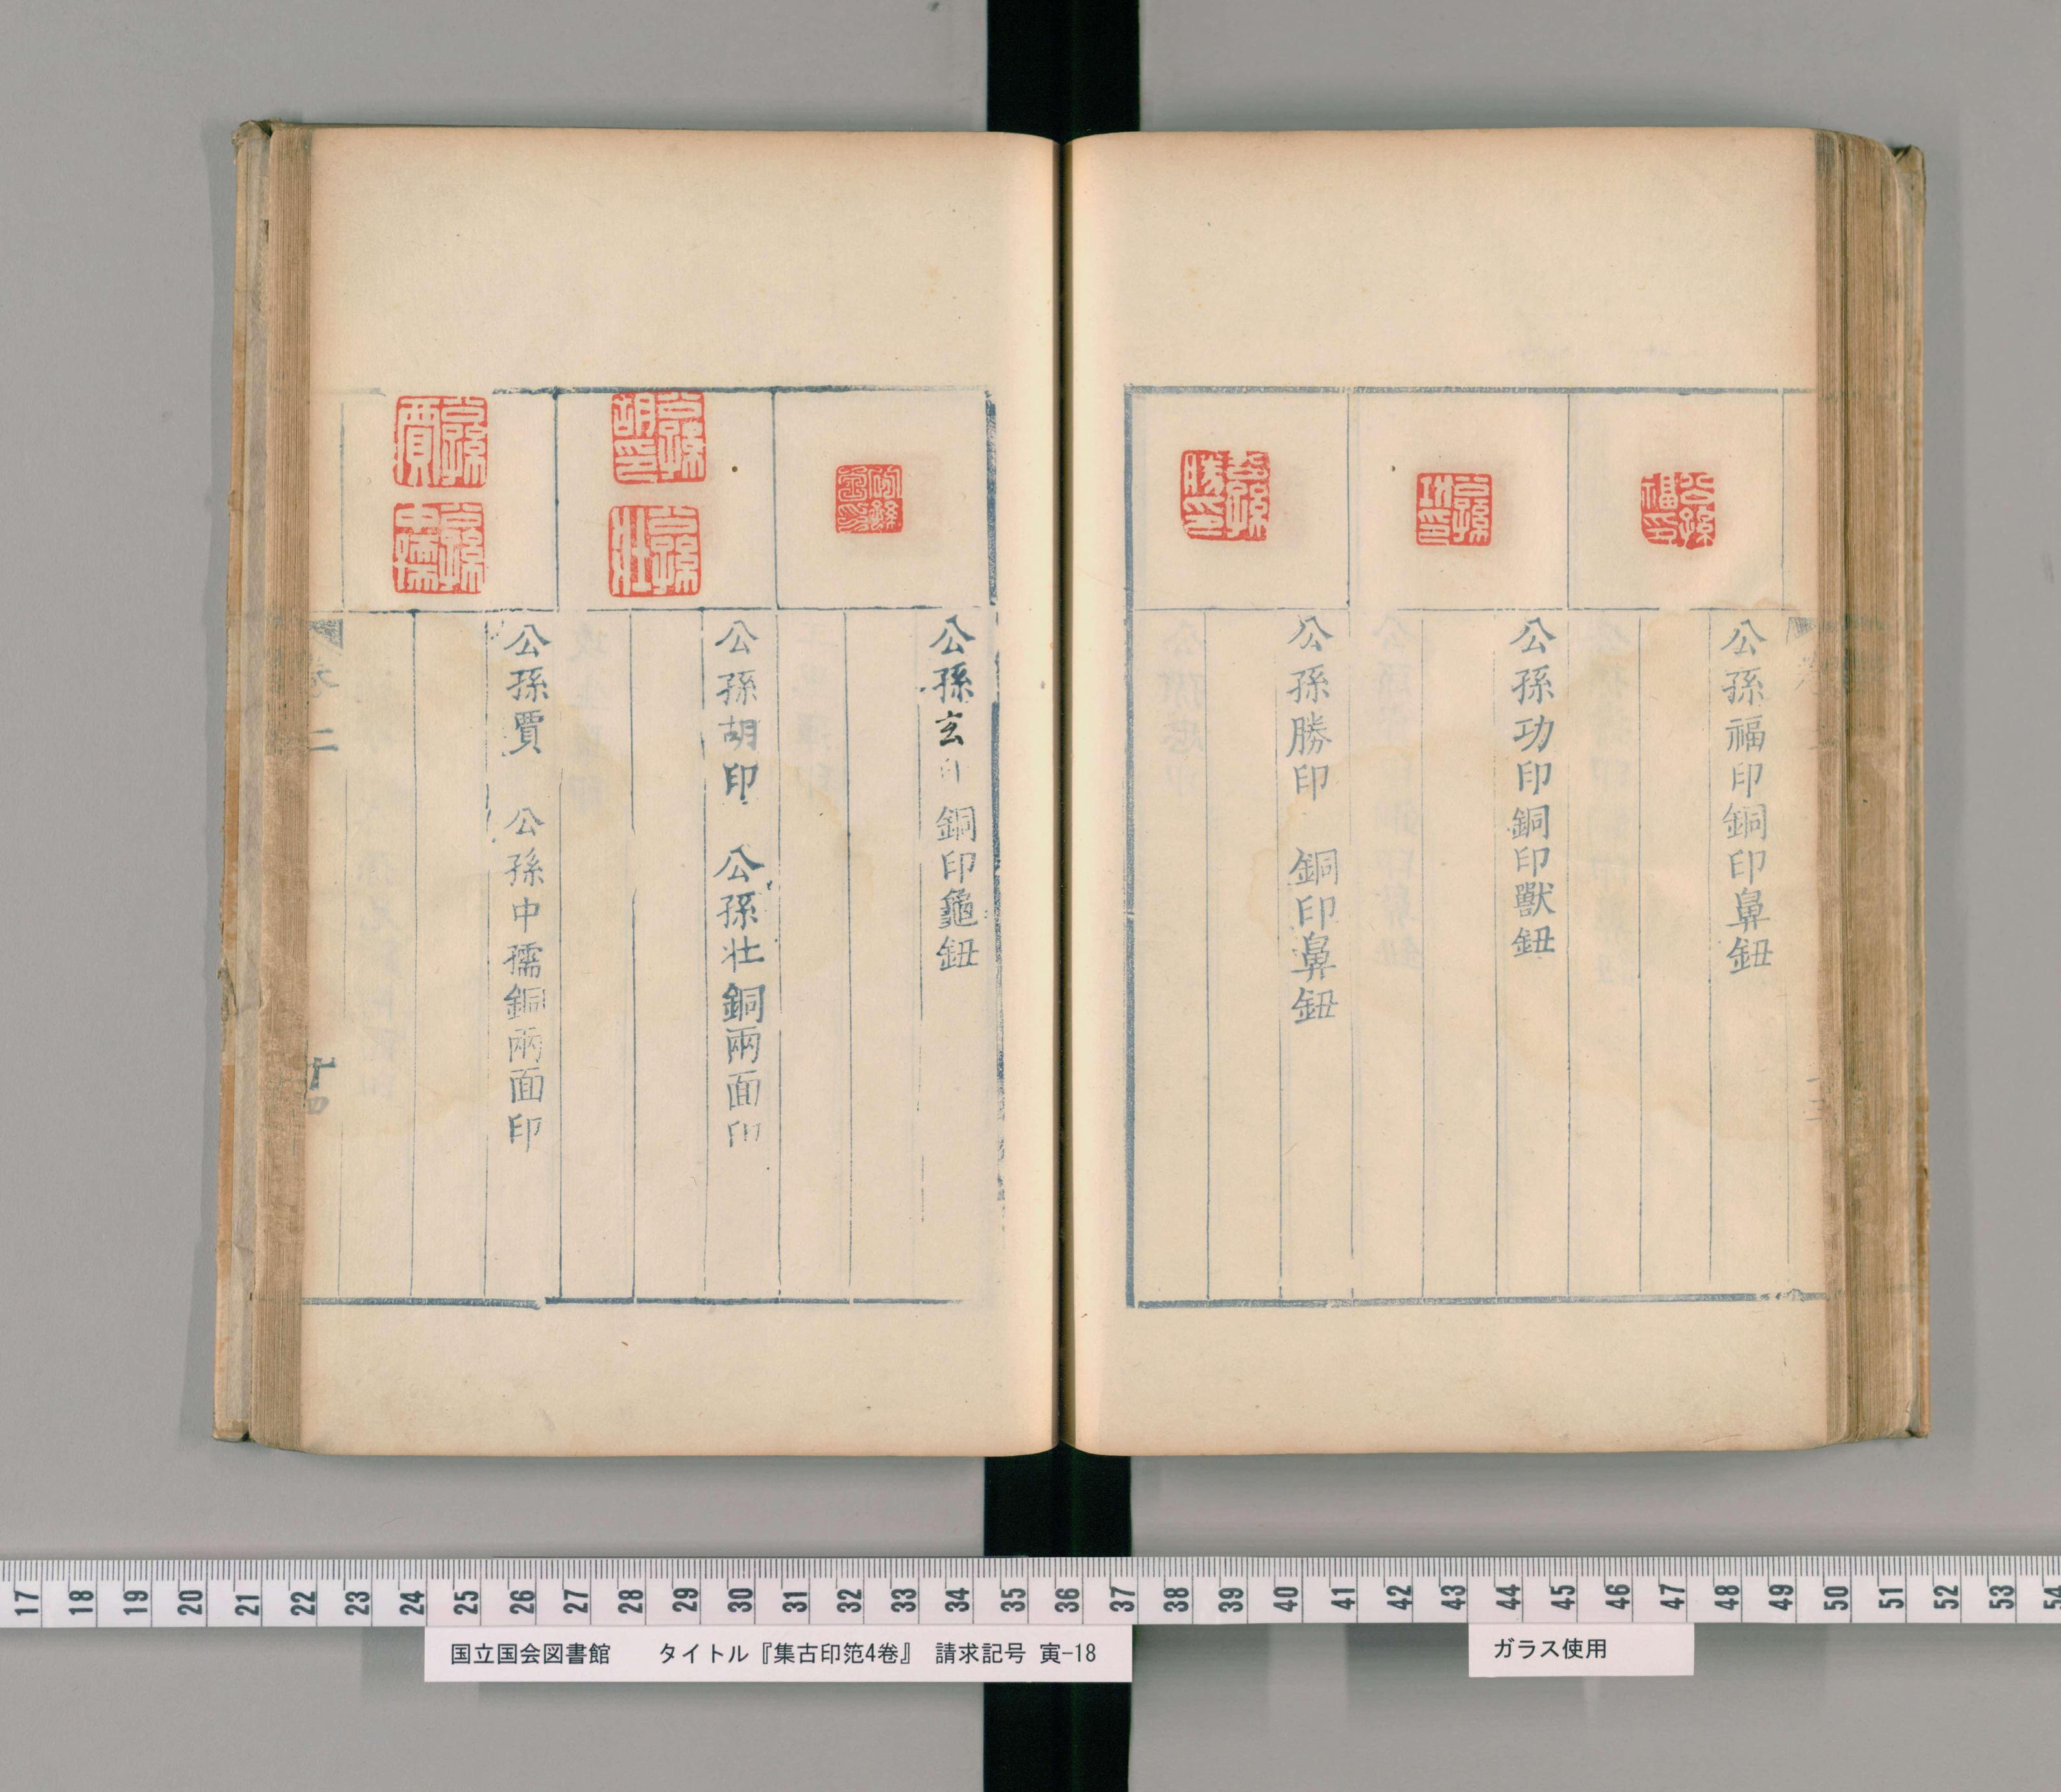 公孫福印
公孫福印銅印鼻鈕
公孫功印
公孫功印銅印獸鈕
公孫勝印
公孫勝印　銅印鼻鈕
公孫玄印　銅印龜鈕
公孫胡印
公孫壯
公孫胡印　公孫壯銅兩面印
公孫賈
公孫中孺
公孫賈　公孫中孺銅兩面印
卷二
十四
17 18 19 20 21 22 23 24 25 26 27 28 29 30 31 32 33 34 35 36 37 38 39 40 41 42 43 44 45 46 47 48 49 50 51 52 53 54
国立国会図書館　タイトル『集古印笵4巻』　請求記号 寅-18
ガラス使用